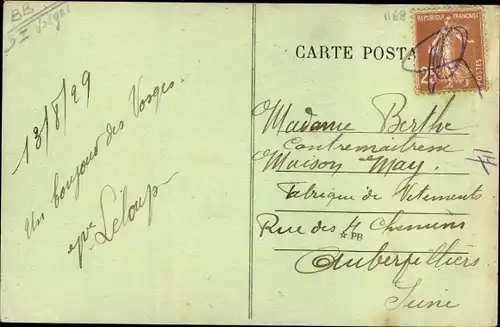 BB
Vosges
1168
CARTE POSTA
REPUBLIQUE FRANÇAISE
POSTES
13/8/29
Un bonjour des Vosges.
Leloup
Madame Berthe
Contremaitresse
Maison May.
Fabrique de Vetements
Rue des 4 Chemins
* PB
Auberfilliers
Seine
14